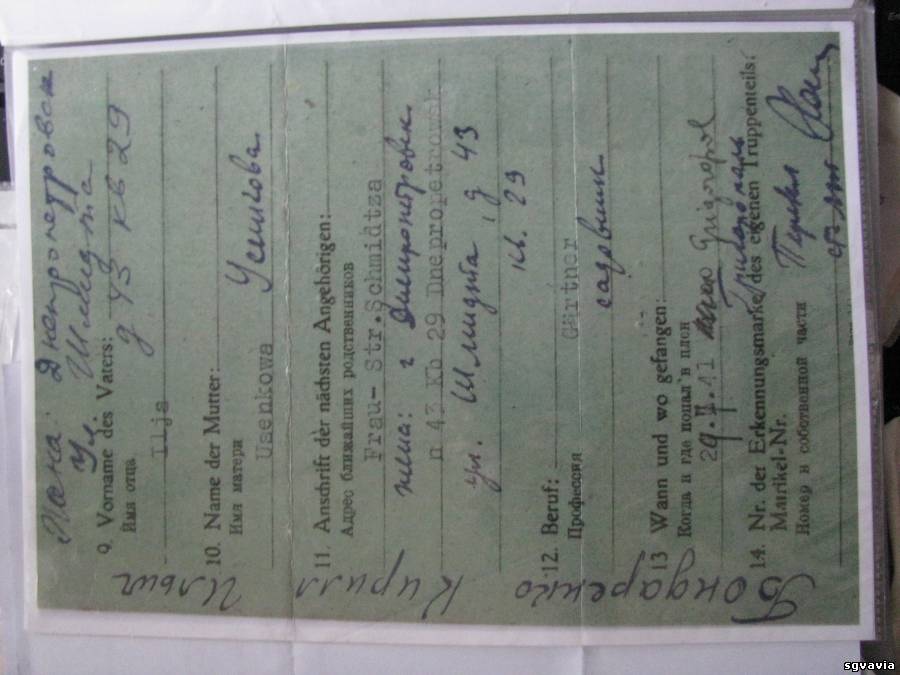 Жена: г Днепропетровск
ул. Шмидта
9. Vorname des Vaters: д 43 кв 29
Имя отца
Ilja
10. Name der Mutter:
Имя матери
Usenkowa Усенкова
11. Anschrift der nächsten Angehörigen:
Адрес ближайших родственников
Frau- Str.Schmidtza
жена: г Днепропетровск
n 43 Kb 29 Dnepropetrowsk
ул. Шмидта, д 43
кв. 29
12. Beruf: Gärtner
Профессия садовник
13 Wann und wo gefangen:
Когда и где попал в плен
29.7.41 Grigoropol
14. Nr. der Erkennungsmarke des eigenen Truppenteils:
Matrikel-Nr.
Номер в собственной части
Бондаренко
Кирилл
Ильич
sgvavia